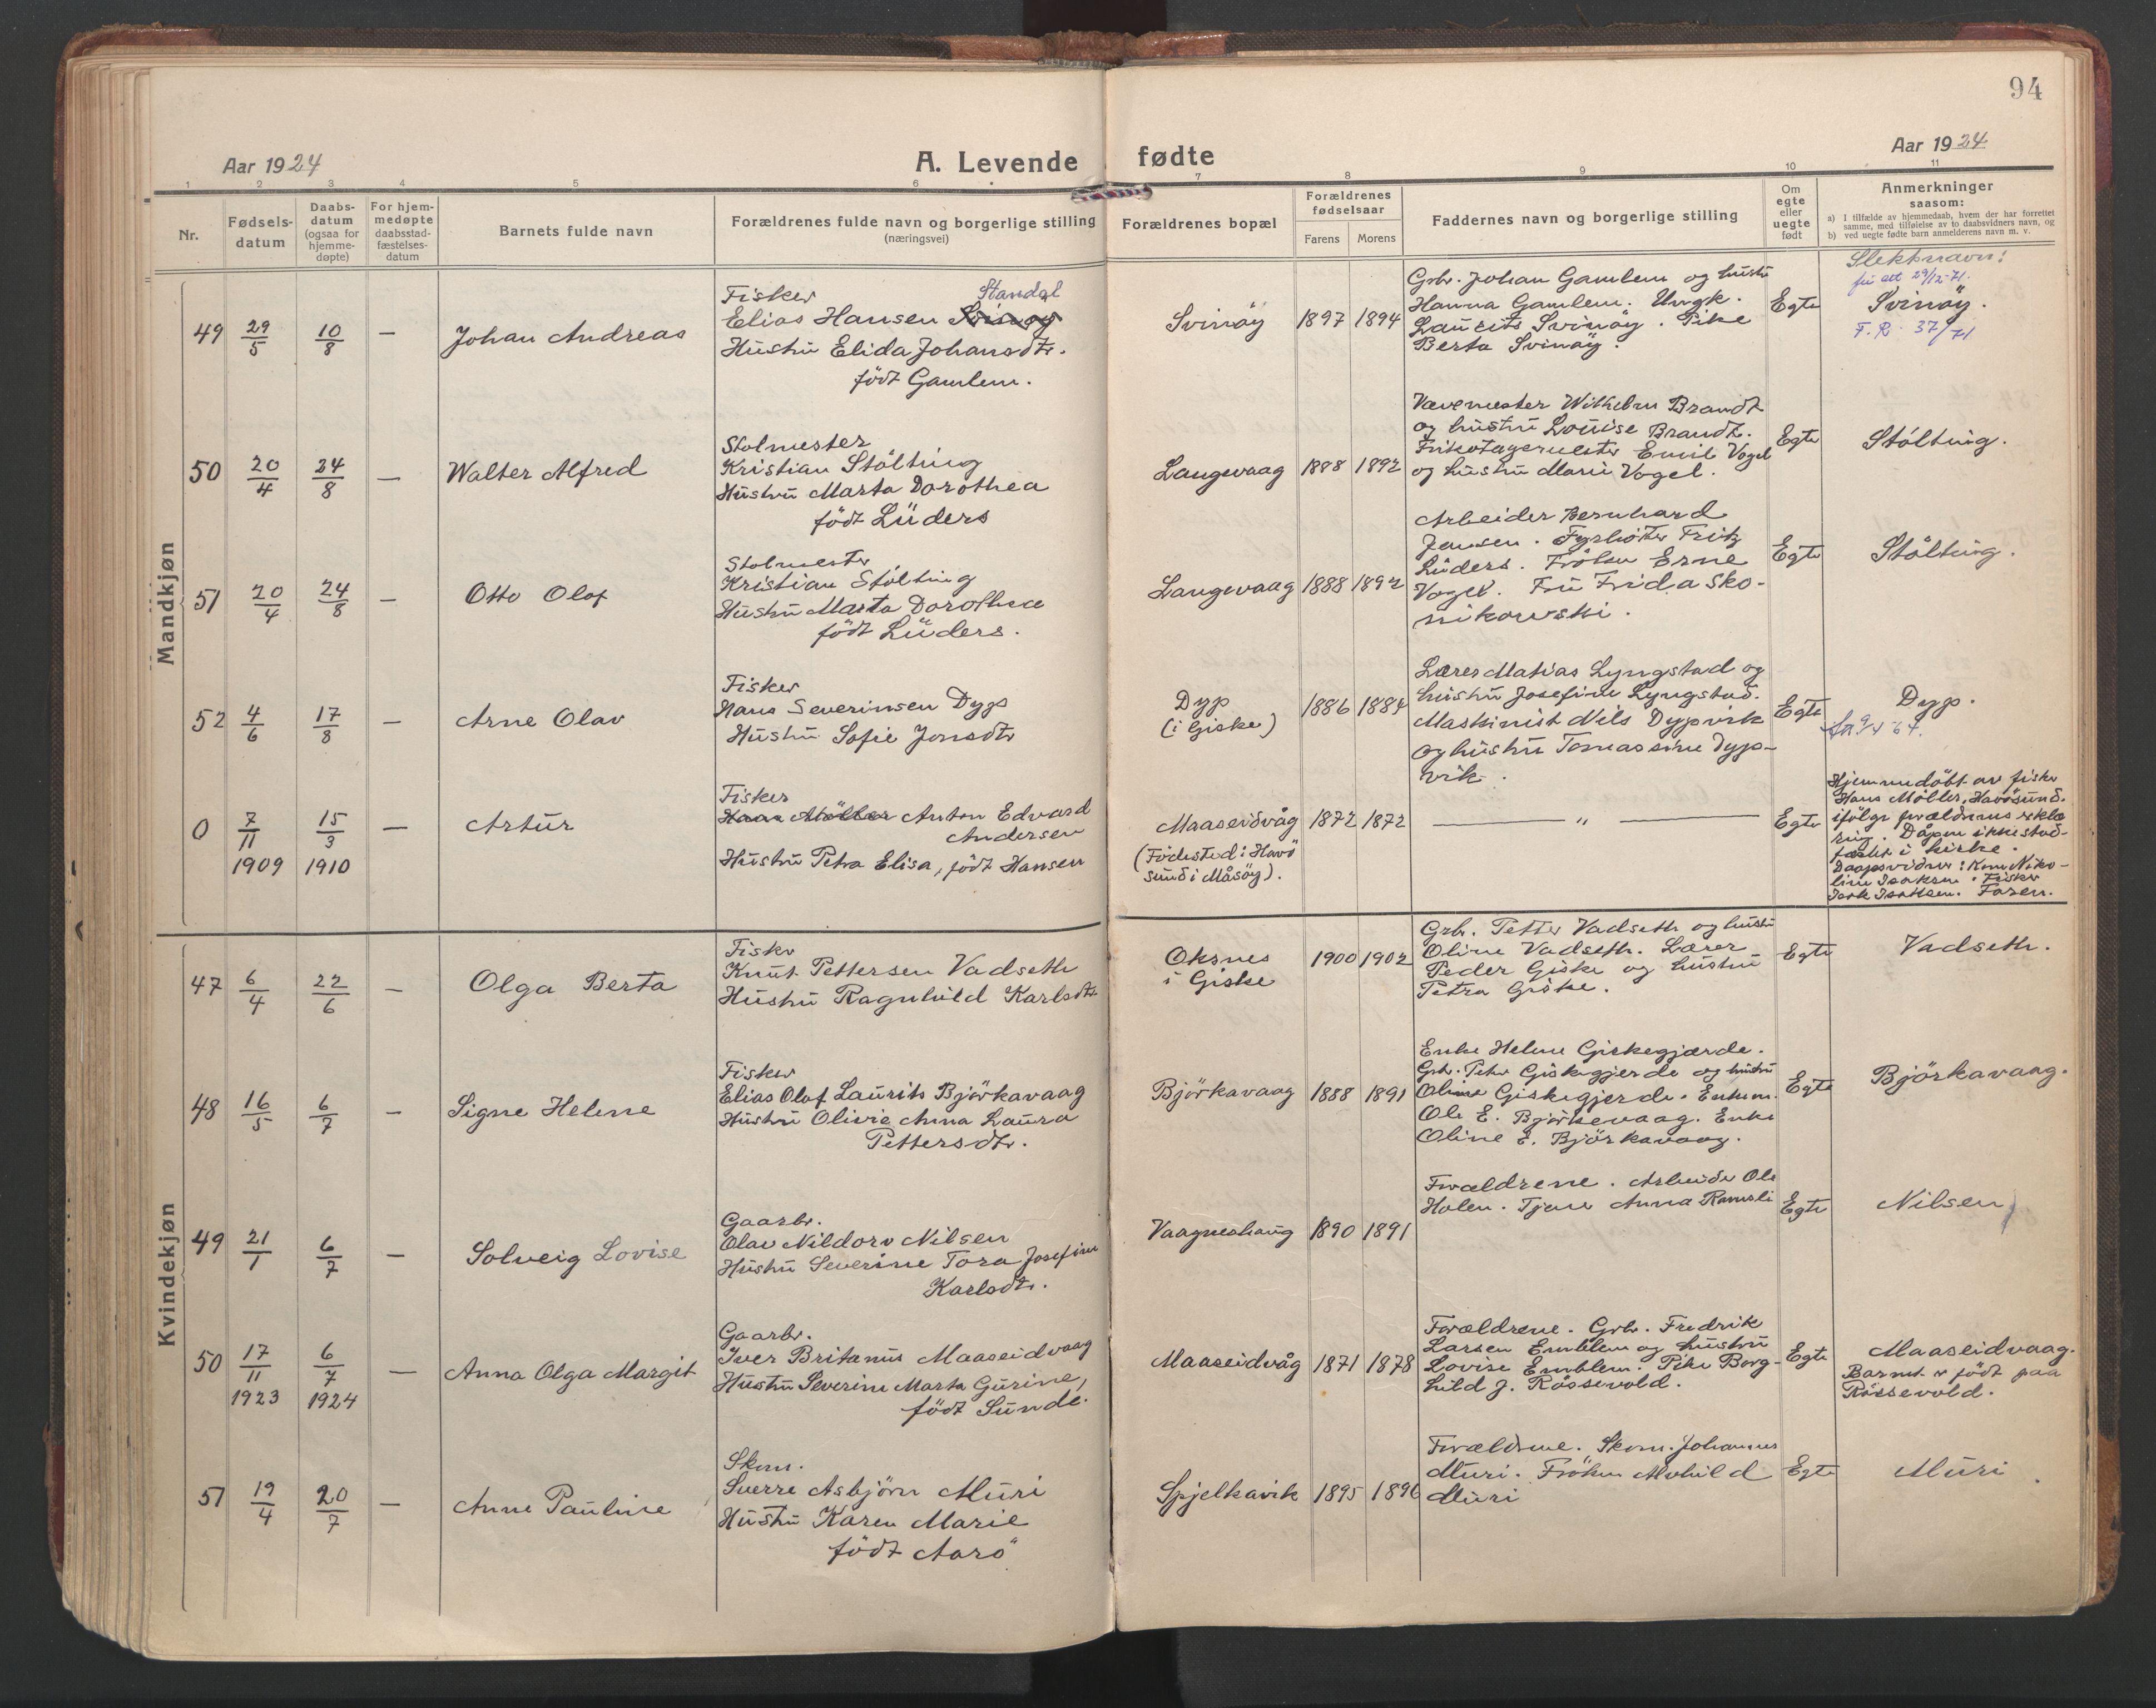 94
Aar 1924
A. Levende fødte
Aar 1924
1 2 3 4 5 6 7 8 9 10 11
Nr.
Fødsels-
datum
Daabs-
datum
(ogsaa for
hjemme-
døpte)
For hjem-
medøpte
daabsstad-
fæstelses-
datum
Barnets fulde navn
Forældrenes fulde navn og borgerlige stilling
(næringsvei)
Forældrenes bopæl
Forældrenes
fødselsaar
Farens Morens
Faddernes navn og borgerlige stilling
Om
egte
eller
uegte
født
Anmerkninger
saasom:
a) I tilfælde av hjemmedaab, hvem der har forrettet
samme, med tilføielse av to daabsvidners navn, og
b) ved uegte fødte barn anmelderens navn m. v.
Mandkjøn
49
29/5
10/8
—
Johan Andreas
Fisker
Standal
Elias Hansen Svinøy
Hustru Elida Johansdtr.
født Gamlem.
Svinøy
1897 1894
Grbr. Johan Gamlem og hustru
Hanna Gamlem. Ungk.
Laurits Svinøy. Pike
Berta Svinøy.
Egte
Slektsnavn:
29/12-71.
Svinøy.
F.R. 37/71
50
20/4
24/8
—
Walter Alfred
Stolmester
Kristian Stölting
Hustru Marta Dorothea
født Lüders
Langevaag
1888 1892
Vævemester Wilhelm Brandt
og hustru Louise Brandt.
Trikotagemester Emil Vogel
og hustru Marie Vogel.
Egte
Stölting.
51
20/4
24/8
—
Otto Olof
Stolmester
Kristian Stölting
Hustru Marta Dorothea
født Lüders.
Langevaag
1888 1892
Arbeider Bernhard
Jensen. Fyrbøter Fritz
Lüders. Frøken Erne
Vogel. Fru Frida Sko-
nikowski.
Egte
Stölting.
52
4/6
17/8
—
Arne Olav
Fisker
Hans Severinsen Dyp
Hustru Sofie Jonsdtr
Dyp
(i Giske)
1886 1884
Lærer Matias Lyngstad og
hustru Josefine Lyngstad.
Maskinist Nils Dypvik
og hustru Tomassine Dyp-
vik.
Egte
Dyp.
0
7/11
1909
15/3
1910
—
Artur
Fisker
Hans Möller Anton Edvard
Andersen
Hustru Petra Elisa, født Hansen
Maaseidvåg
(Fødested: Havø
sund i Måsøy).
1872 1872
— " —
Egte
Hjemmedøbt av fisker
Hans Möller, Havösund.
ifölge forældrenes erklæ
ring. Dåpen ikke stad-
fæstet i kirke.
Daapsvidner: Kone Niko-
line Isaksen. Fisker
Isak Isaksen. Faren.
Kvindekjøn
47
6/4
22/6
—
Olga Berta
Fisker
Knut Pettersen Vadseth
Hustru Ragnhild Karlsdtr
Oksnes
i Giske
1900 1902
Grbr. Petter Vadseth og hustru
Oline Vadseth. Lærer
Peder Giske og hustru
Petra Giske.
Egte
Vadseth.
48
16/5
6/7
—
Signe Helene
Fisker
Elias Olaf Laurits Björkavaag
Hustru Olivie Anna Laura
Pettersdtr.
Björkavaag
1888 1891
Enke Helene Giskegjærde.
Grbr. Peter Giskegjerde og hustru
Oline Giskegjerde. Enkem.
Ole E. Björkevaag. Enke
Oline E. Björkavaag.
Egte
Björkavaag.
49
21/1
6/7
—
Solveig Lovise
Gaarbr.
Olav Nildorv Nilsen
Hustru Severine Tora Josefine
Karlsdtr.
Vaagneshaug
1890 1891
Forældrene. Arbeider Ole
Holen. Tjener Anna Ramsli
Egte
Nilsen
50
17/11
1923
6/7
1924
—
Anna Olga Margit
Gaarbr.
Iver Britanus Maaseidvaag
Hustru Severine Marta Gurine,
født Sunde.
Maaseidvåg
1871 1878
Forældrene. Grbr. Fredrik
Larsen Emblem og hustru
Lovise Emblem. Pike Borg-
hild J. Røssevold.
Egte
Maaseidvaag.
Barnet er født paa
Røssevold.
51
19/4
20/7
—
Anne Pauline
Skom.
Sverre Asbjørn Muri
Hustru Karen Marie
født Aarø
Spjelkavik
1895 1896
Forældrene. Skom. Johannes
Muri. Frøken Alvhild
Muri
Egte
Muri.